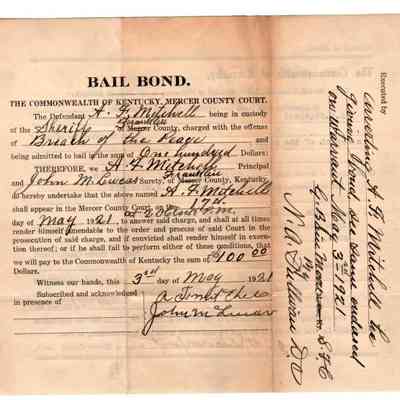 BAIL BOND.
THE COMMONWEALTH OF KENTUCKY, MERCER COUNTY COURT.
The Defendant A. F. Mitchell being in custody
Franklin
of the Sheriff of Mercer County, charged with the offense
of Breach of the Peace and
being admitted to bail in the sum of One hundred Dollars:
THEREFORE, we A F Mitchell Principal
Franklin
and John M. Lucas Surety, of Mercer County, Kentucky,
do hereby undertake that the above named A. F. Mitchell
shall appear in the Mercer County Court, on the 17th
day of May 1921, at 2 oclock P.M. to answer said charge, and shall at all times
render himself amendable to the order and process of said Court in the
prosecution of said charge, and if convicted shall render himself in execu-
tion thereof; or if he shall fail to perform either of these conditions, that
we will pay to the Commonwealth of Kentucky the sum of $100.00
Dollars.
Witness our hands, this 3rd day of May 1921
Subscribed and acknowledged
in presence of
John M Lucas
Executed by
arresting A. F. Mitchell he
giving bond so same endorsed
on warrant May 3rd 1921
By
N. A. Sullivan D.C